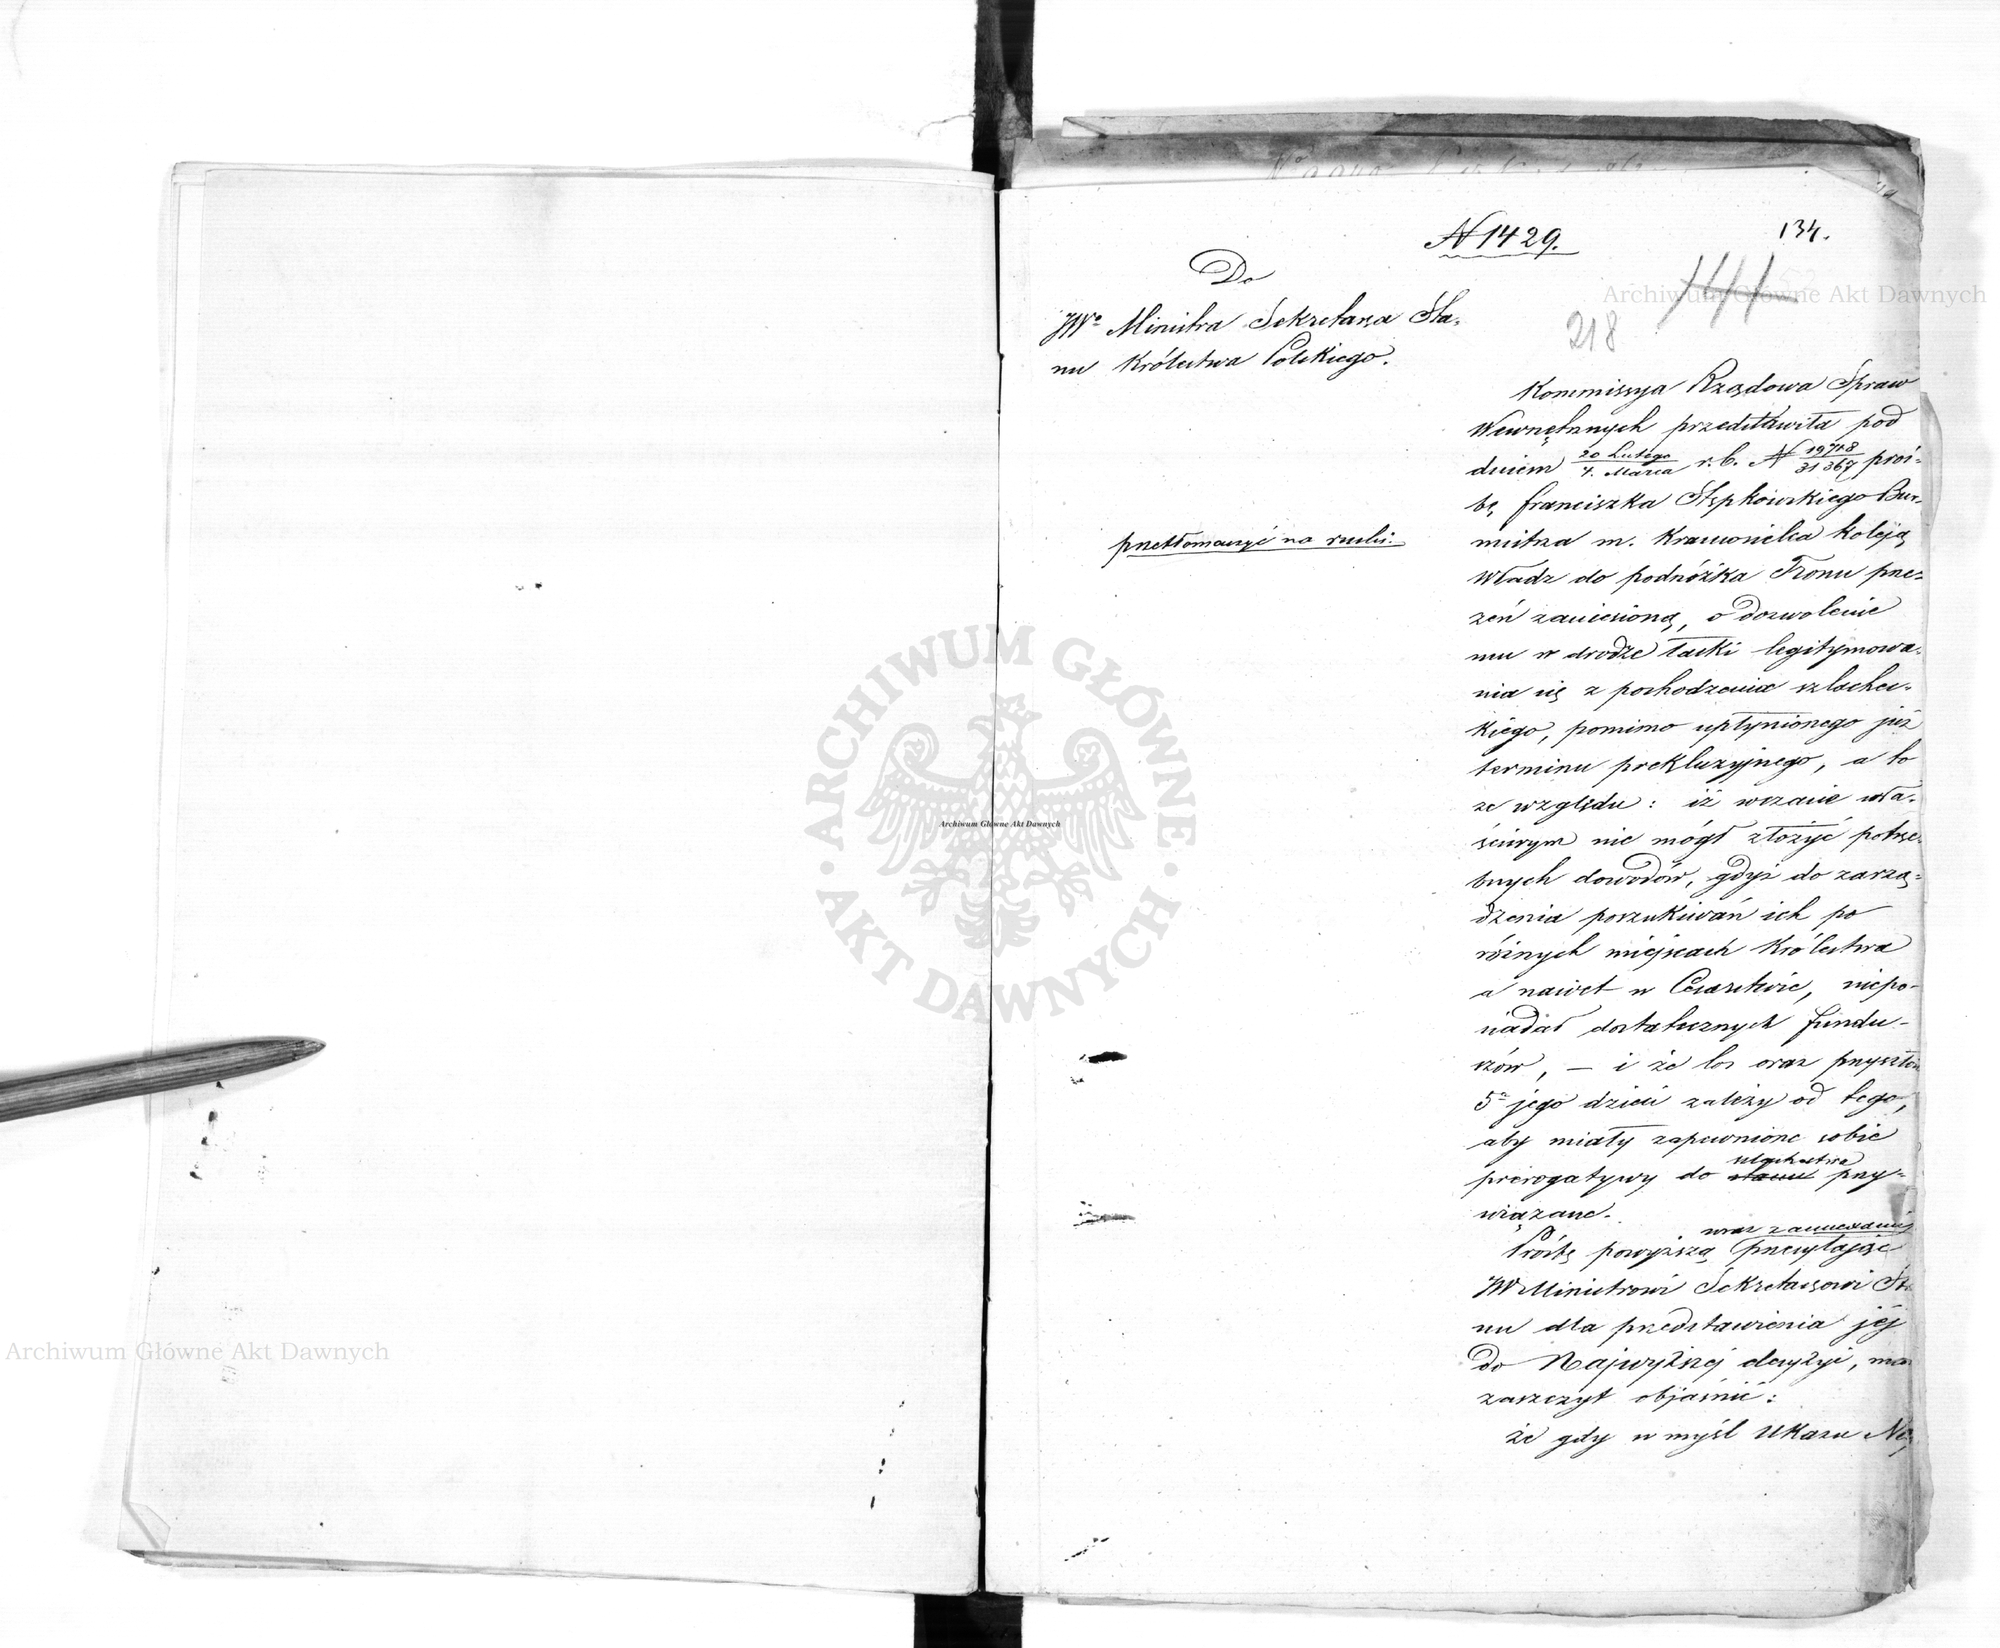 N 1429.
134.
144
218
Do
JWo Ministra Sekretarza Sta-
nu Królestwa Polskiego.
przetłomaczyć na ruski.
Kommissya Rządowa Spraw
Wewnętrznych przedstawiła pod
dniem 20 Lutego / 4. Marca r. b. N 19718 / 31367 proś-
bę Franciszka Stępkowskiego Bur-
mistrza m. Krasnosielca koleją
Władz do podnóżka Tronu prze-
zeń zaniesioną, o dozwolenie
mu w drodze łaski legitymowa-
nia się z pochodzenia szlachec-
kiego, pomimo upłynionego już
terminu prekluzyjnego, a to
ze względu: iż wczasie wła-
ściwym nie mógł złożyć potrze-
bnych dowodów, gdyż do zarzą-
dzenia poszukiwań ich po
różnych miejscach Królestwa
a nawet w Cesarstwie, niepo-
siadał dostatecznych fundu-
szów, – i że los oraz przyszłość
5a jego dzieci zależy od tego,
aby miały zapewnione sobie
szlachectwa
prerogatywy do stanu przy-
wiązane.
wraz z annexami
Prośbę powyższą przesyłając
JW Ministrowi Sekretarzowi Sta
nu dla przedstawienia jej
do Najwyższej decyzyi, mam
zaszczyt objaśnić:
że gdy w myśl Ukazu Naj
Archiwum Główne Akt Dawnych
ARCHIWUM GŁÓWNE
AKT DAWNYCH
Archiwum Główne Akt Dawnych
Archiwum Główne Akt Dawnych